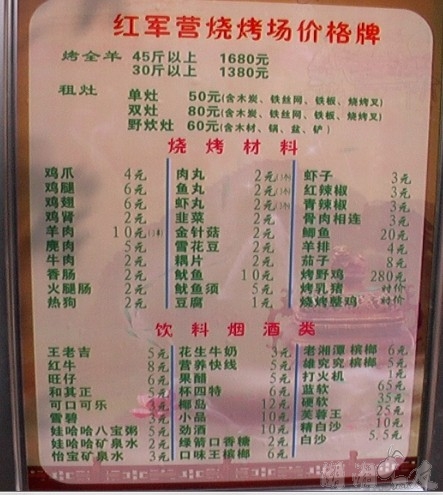 红军营烧烤场价格牌
烤全羊 45斤以上 1680元
30斤以上 1380元
租灶 单灶 50元(含木炭、铁丝网、铁板、烧烤叉)
双灶 80元(含木炭、铁丝网、铁板、烧烤叉)
野炊灶 60元(含木材、锅、盆、铲)
烧烤材料
鸡爪 4元 肉丸 2元 虾子 3元
鸡腿 6元 鱼丸 2元 红辣椒 3元
鸡翅 6元 虾丸 2元 青辣椒 3元
鸡肾 2元 韭菜 2元 骨肉相连 3元
羊肉 10元 金针菇 2元 鲫鱼 20元
麂肉 5元 雪花豆 2元 羊排 4元
牛肉 2元 藕片 2元 茄子 8元
香肠 2元 鱿鱼 10元 烤野鸡 280元
火腿肠 2元 鱿鱼须 5元 烤乳猪 时价
热狗 2元 豆腐 1元 烧烤整鸡 时价
饮料烟酒类
王老吉 5元 花生牛奶 3元 老湘潭槟榔 6元
红牛 8元 营养快线 5元 雄究究槟榔 5元
旺仔 6元 果醋 5元 打火机 1元
和其正 5元 杯四特 6元 蓝软 65元
可口可乐 3元 椰岛 12元 硬软 35元
雪碧 3元 小品 10元 芙蓉王 25元
娃哈哈八宝粥 5元 劲酒 10元 精白沙 10元
娃哈哈矿泉水 2元 绿箭口香糖 2元 白沙 5.5元
怡宝矿泉水 3元 口味王槟榔 6元